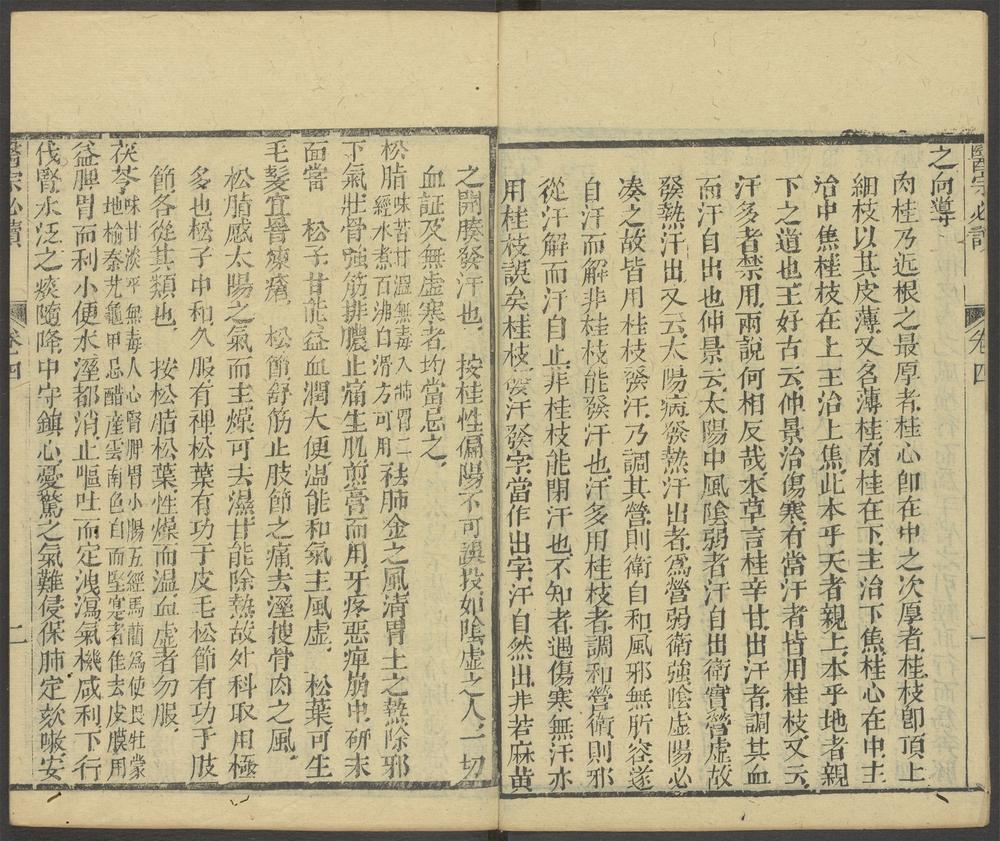 醫宗必讀
卷四
一
之向導
肉桂乃近根之最厚者桂心卽在中之次厚者桂枝卽頂上
細枝以其皮薄又名薄桂肉桂在下主治下焦桂心在中主
治中焦桂枝在上主治上焦此本乎天者親上本乎地者親
下之道也王好古云仲景治傷寒有當汗者皆用桂枝又云
汗多者禁用兩說何相反哉本草言桂辛甘出汗者調其血
而汗自出也仲景云太陽中風陰弱者汗自出衛實營虛故
發熱汗出又云太陽病發熱汗出者爲營弱衛強陰虛陽必
凑之故皆用桂枝發汗乃調其營則衛自和風邪無所容遂
自汗而解非桂枝能發汗也汗多用桂枝者調和營衛則邪
從汗解而汗自止非桂枝能閉汗也不知者遇傷寒無汗亦
用桂枝誤矣桂枝發汗發字當作出字汗自然出非若麻黄
之開腠發汗也　按桂性偏陽不可誤投如陰虛之人一切
血証及無虛寒者均當忌之
松脂味苦甘溫無毒入肺胃二經水煮百沸白滑方可用祛肺金之風清胃土之熱除邪
下氣壯骨強筋排膿止痛生肌煎膏而用牙疼惡痺崩中研末
面當　松子甘能益血潤大便溫能和氣主風虛　松葉可生
毛髮宜簪瘝瘡　松節舒筋止肢節之痛去溼搜骨肉之風
松脂感太陽之氣而主燥可去濕甘能除熱故外科取用極
多也松子中和久服有裨松葉有功于皮毛松節有功于肢
節各從其類也　按松脂松葉性燥而温血虛者勿服
茯苓味甘淡平無毒入心腎脾胃小腸五經馬藺爲使畏牡蒙地榆秦艽龜甲忌醋産雲南色白而堅寔者佳去皮膜用
益脾胃而利小便水溼都消止嘔吐而定洩瀉氣機咸利下行
伐腎水泛之痰隨降中守鎮心憂驚之氣難侵保肺定欬嗽安
醫宗必讀
卷四
二